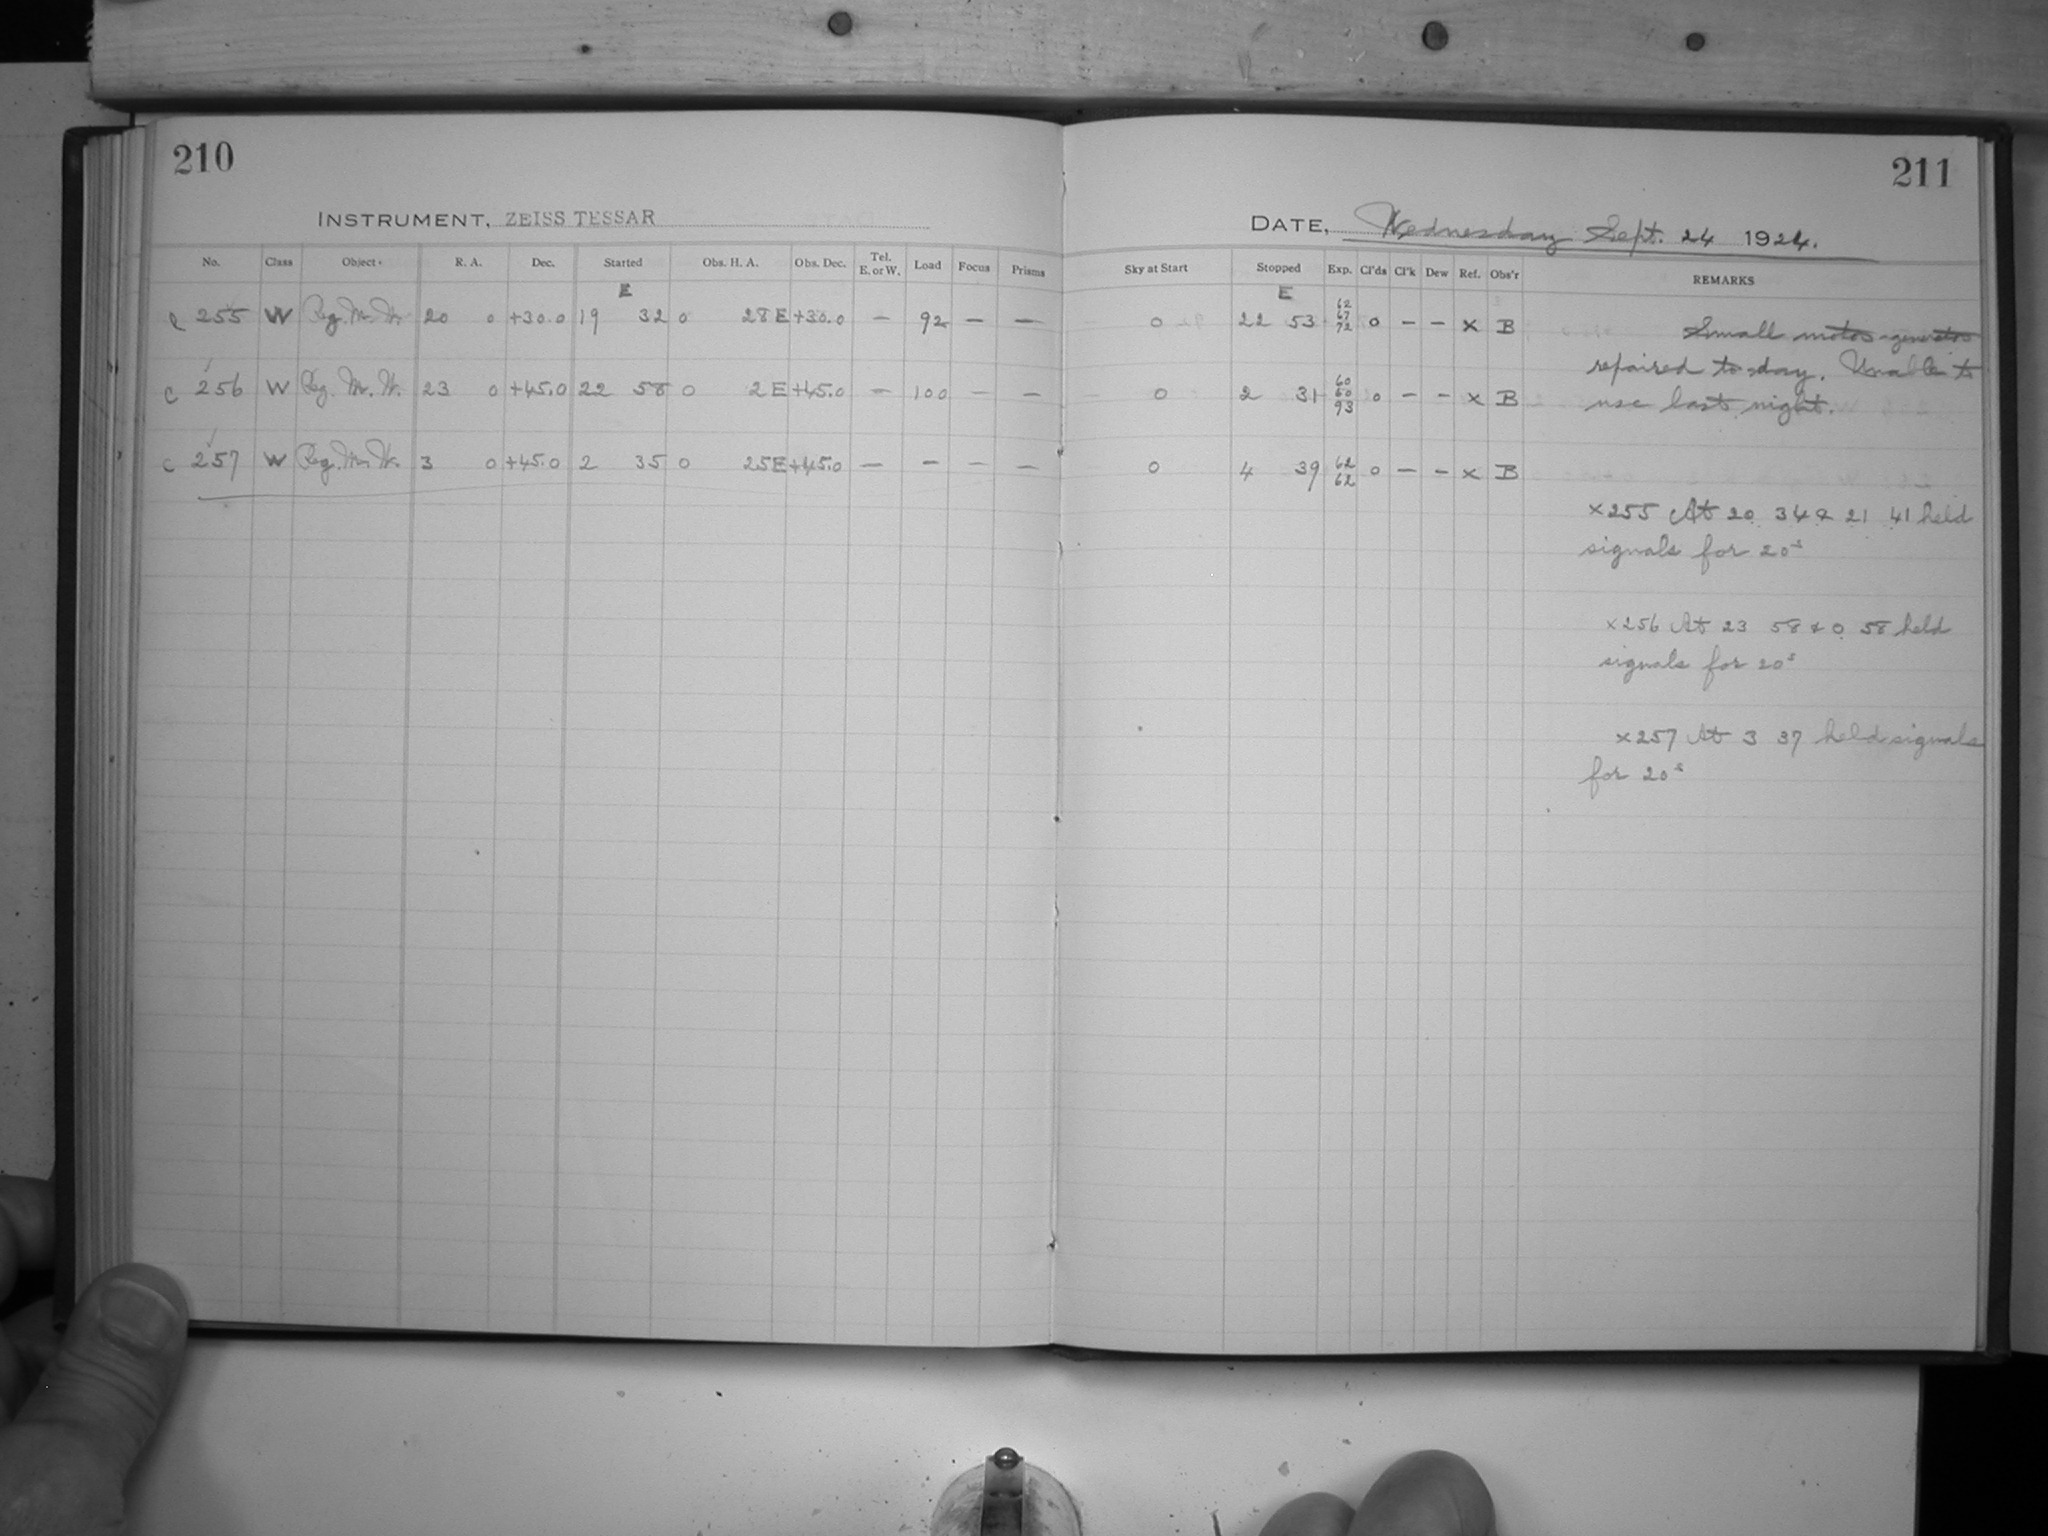 210
INSTRUMENT, ZEISS TESSAR
No. Class Object R. A. Dec. Started Obs. H. A. Obs. Dec. Tel. E. or W. Load Focus Prisms
E
255 W Reg. M. W. 20 0 +30.0 19 32 0 28 E +30.0 — 92 — —
c 256 W Reg. M. W. 23 0 +45.0 22 58 0 2 E +45.0 — 100 — —
c 257 W Reg. M. W. 3 0 +45.0 2 35 0 25 E +45.0 — — — —
211
DATE, Wednesday Sept. 24 1924.
Sky at Start Stopped Exp. Cl'ds Cl'k Dew Ref. Obs'r REMARKS
E
0 22 53 62 67 72 0 — — x B Small motor-generator
repaired to-day. Unable to
0 2 31 60 60 93 0 — — x B use last night.
0 4 39 62 62 0 — — x B
x255 At 20 34 & 21 41 held
signals for 20s
x256 At 23 58 & 0 58 held
signals for 20s
x257 At 3 37 held signals
for 20s